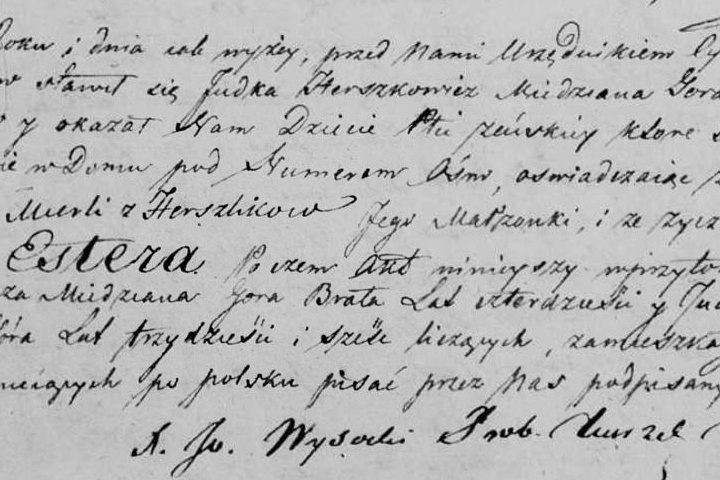 Roku i dnia jak wyżey, przed Nami Urzędnikiem Cy
w stawił się Judka Herszkowicz Miedziana Gora
y okazał Nam Dziecie Płci zeńskiey ktore
w Domu pod Numerem Ośm, oswiadczaiąc
Mierli z Herszlikow Jego Małżonki, i ze zycz
Estera Poczem Akt ninieyszy wprzyto
za Miedziana Gora Brata Lat czterdzieści y Jud
óra Lat trzydzieści i sześć liczących, zamieszka
umieiących po polsku pisać przez Nas podpisany
X. Jo. Wysocki Prob.